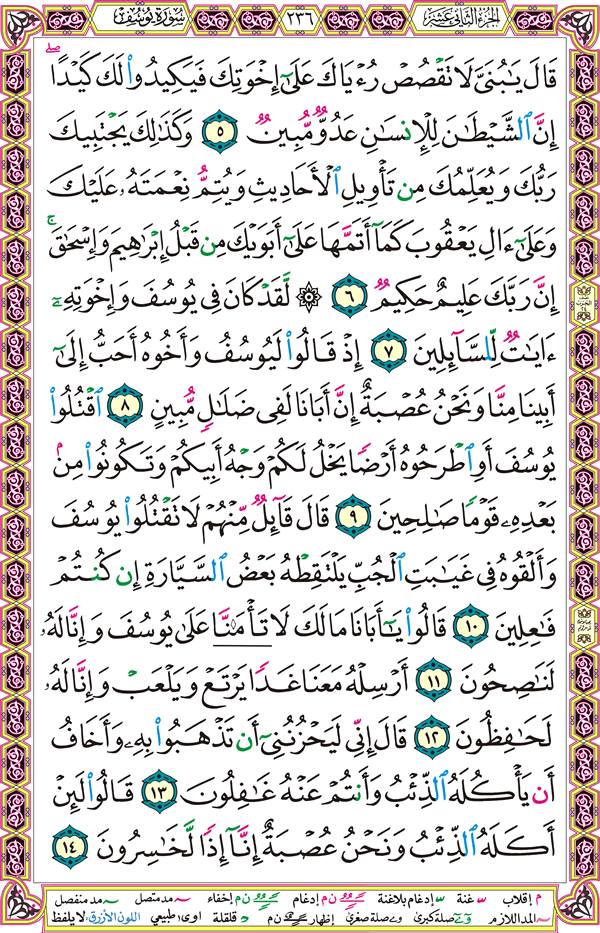 الجزء الثاني عشر ٢٣٦ سورة يوسف
قَالَ يَٰبُنَىَّ لَا تَقْصُصْ رُءْيَاكَ عَلَىٰٓ إِخْوَتِكَ فَيَكِيدُوا۟ لَكَ كَيْدًا ۖ
إِنَّ ٱلشَّيْطَٰنَ لِلْإِنسَٰنِ عَدُوٌّ مُّبِينٌ ٥ وَكَذَٰلِكَ يَجْتَبِيكَ
رَبُّكَ وَيُعَلِّمُكَ مِن تَأْوِيلِ ٱلْأَحَادِيثِ وَيُتِمُّ نِعْمَتَهُۥ عَلَيْكَ
وَعَلَىٰٓ ءَالِ يَعْقُوبَ كَمَآ أَتَمَّهَا عَلَىٰٓ أَبَوَيْكَ مِن قَبْلُ إِبْرَٰهِيمَ وَإِسْحَٰقَ ۚ
إِنَّ رَبَّكَ عَلِيمٌ حَكِيمٌ ٦ ۞ لَّقَدْ كَانَ فِى يُوسُفَ وَإِخْوَتِهِۦٓ
ءَايَٰتٌ لِّلسَّآئِلِينَ ٧ إِذْ قَالُوا۟ لَيُوسُفُ وَأَخُوهُ أَحَبُّ إِلَىٰٓ
أَبِينَا مِنَّا وَنَحْنُ عُصْبَةٌ إِنَّ أَبَانَا لَفِى ضَلَٰلٍ مُّبِينٍ ٨ ٱقْتُلُوا۟
يُوسُفَ أَوِ ٱطْرَحُوهُ أَرْضًا يَخْلُ لَكُمْ وَجْهُ أَبِيكُمْ وَتَكُونُوا۟ مِنۢ
بَعْدِهِۦ قَوْمًا صَٰلِحِينَ ٩ قَالَ قَآئِلٌ مِّنْهُمْ لَا تَقْتُلُوا۟ يُوسُفَ
وَأَلْقُوهُ فِى غَيَٰبَتِ ٱلْجُبِّ يَلْتَقِطْهُ بَعْضُ ٱلسَّيَّارَةِ إِن كُنتُمْ
فَٰعِلِينَ ١٠ قَالُوا۟ يَٰٓأَبَانَا مَا لَكَ لَا تَأْمَ۫نَّا عَلَىٰ يُوسُفَ وَإِنَّا لَهُۥ
لَنَٰصِحُونَ ١١ أَرْسِلْهُ مَعَنَا غَدًا يَرْتَعْ وَيَلْعَبْ وَإِنَّا لَهُۥ
لَحَٰفِظُونَ ١٢ قَالَ إِنِّى لَيَحْزُنُنِىٓ أَن تَذْهَبُوا۟ بِهِۦ وَأَخَافُ
أَن يَأْكُلَهُ ٱلذِّئْبُ وَأَنتُمْ عَنْهُ غَٰفِلُونَ ١٣ قَالُوا۟ لَئِنْ
أَكَلَهُ ٱلذِّئْبُ وَنَحْنُ عُصْبَةٌ إِنَّآ إِذًا لَّخَٰسِرُونَ ١٤
م إقلاب غنة إدغام بلاغنة ن م إدغام ن م إخفاء مد متصل مد منفصل
المد اللازم صلة كبرى صلة صغرى إظهار ن م قلقلة اوى طبيعي اللون الأزرق لا يلفظ